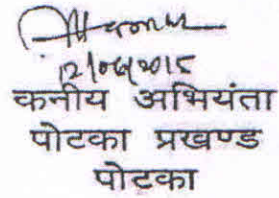 12/06/2015
कनीय अभियंता
पोटका प्रखण्ड
पोटका